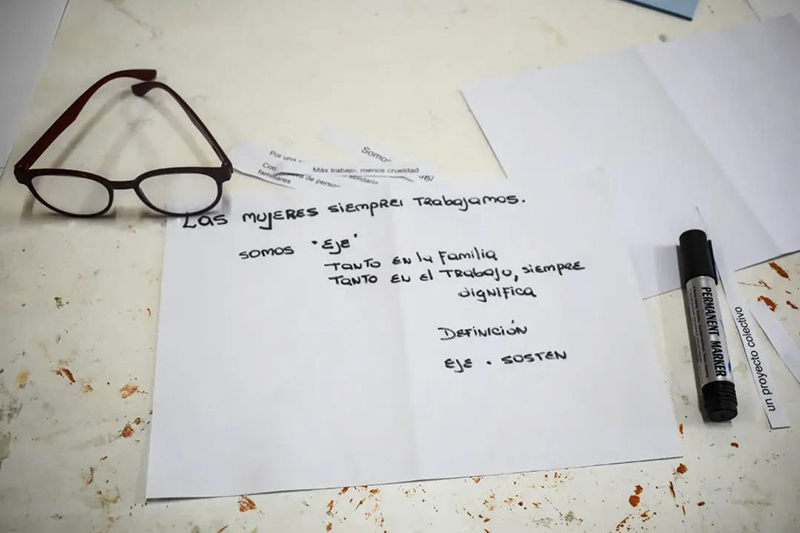 Por una
Somo
Más trabajo, menos crueldad
familiares
de perso
solidario
Las MUJERES SIEMPREI TRABAJAMOS.
SOMOS "EJE"
TANTO EN la Familia
TANTO EN EL TRABAJO, SIEMPRE
dignifica
DEFINICIÓN
EJE . SOSTEN
PERMANENT MARKER
un proyecto colectivo